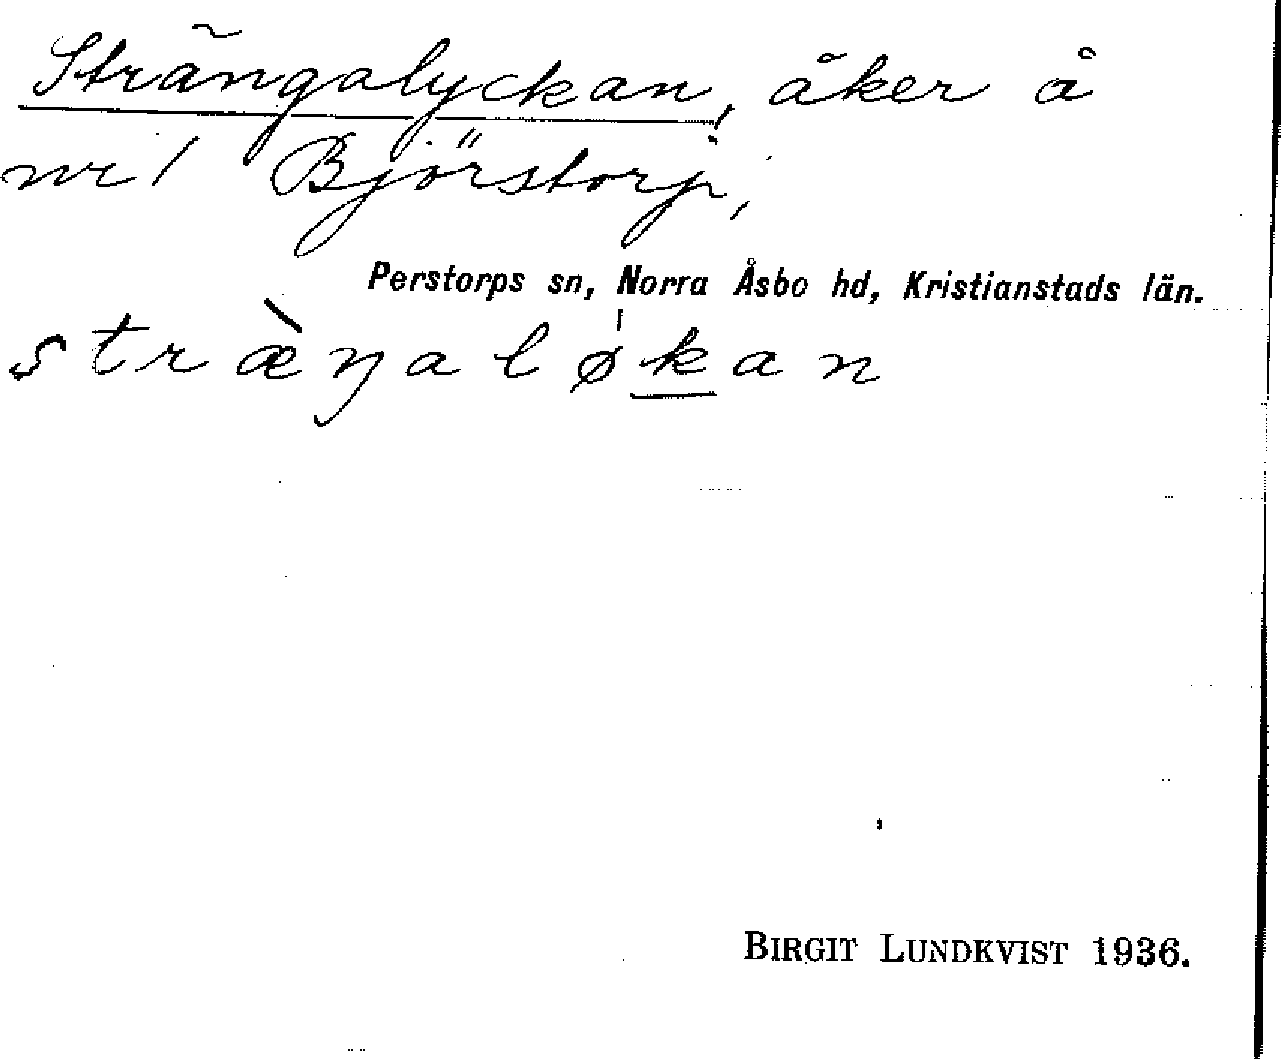 Strängalyckan, åker å
nr 1 Björstorp,
Perstorps sn, Norra Åsbo hd, Kristianstads län.
stræ̀ŋaløkan
BIRGIT LUNDKVIST 1936.